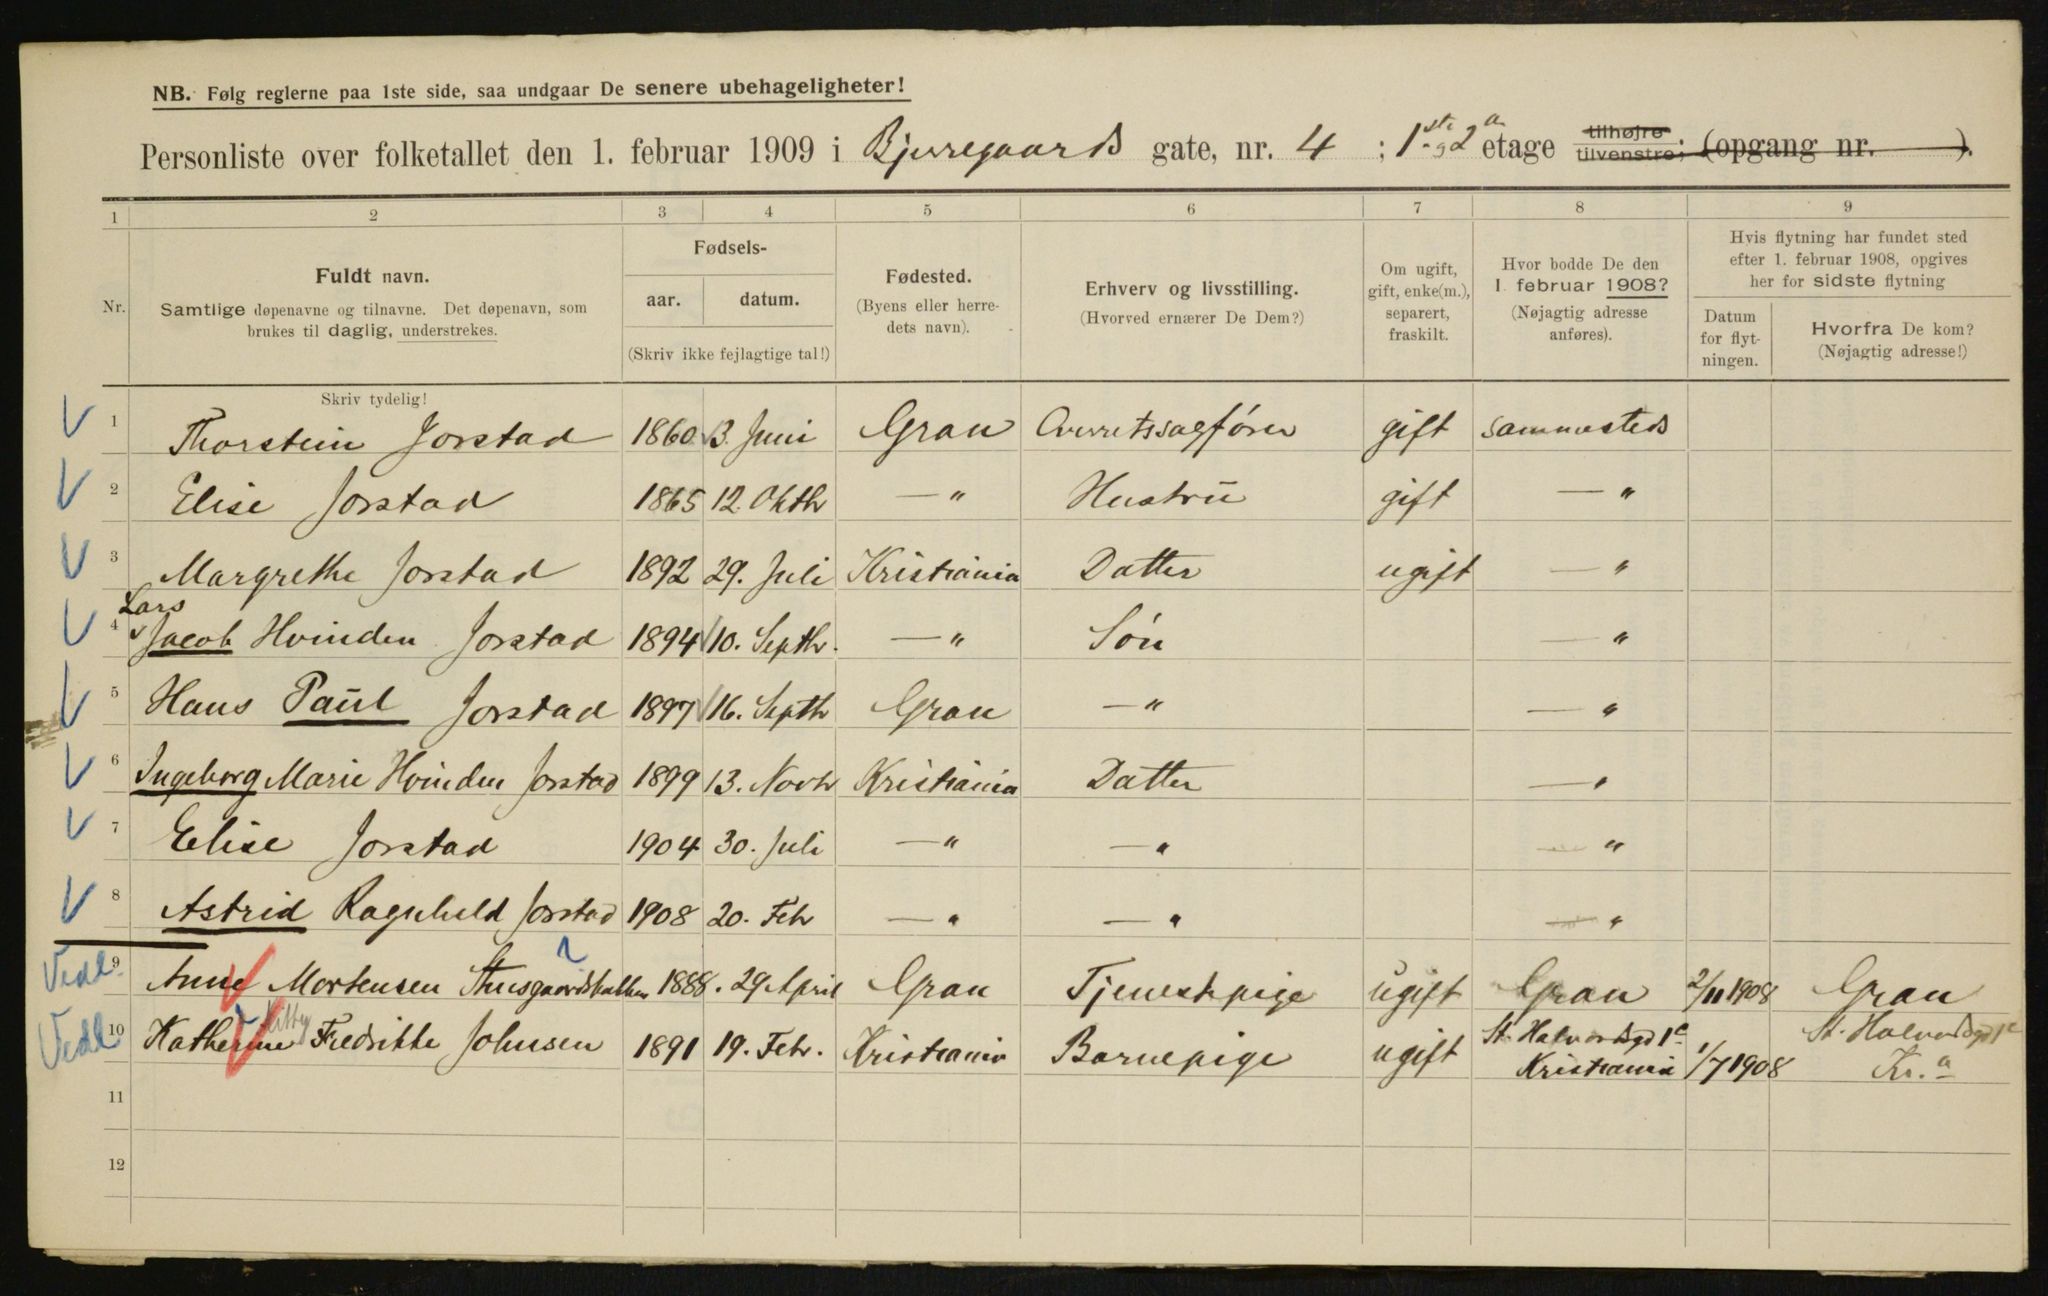 NB. Følg reglerne paa 1ste side, saa undgaar De senere ubehageligheter!
Personliste over folketallet den 1. februar 1909 i Bjerregaards gate, nr. 4 ; 1ste og 2a etage tilhøjre tilvenstre; (opgang nr. ).
1 2 3 4 5 6 7 8 9
Nr.
Fuldt navn.
Samtlige døpenavne og tilnavne. Det døpenavn, som
brukes til daglig, understrekes.
Fødsels-
aar. datum.
(Skriv ikke fejlagtige tal!)
Fødested.
(Byens eller herre-
dets navn).
Erhverv og livsstilling.
(Hvorved ernærer De Dem?)
Om ugift,
gift, enke(m.),
separert,
fraskilt.
Hvor bodde De den
1. februar 1908?
(Nøjagtig adresse
anføres).
Hvis flytning har fundet sted
efter 1. februar 1908, opgives
her for sidste flytning
Datum
for flyt-
ningen.
Hvorfra De kom?
(Nøjagtig adresse!)
Skriv tydelig!
1 Thorstein Jorstad 1860 3. Juni Gran Overretssagfører gift sammesteds
2 Elise Jorstad 1865 12. Oktbr — " Hustru gift — "
3 Margrethe Jorstad 1892 29. Juli Kristiania Datter ugift — "
Lars
4 Jacob Hvinden Jorstad 1894 10. Septbr. — " Søn — "
5 Hans Paul Jorstad 1897 16. Septbr Gran — " — "
6 Ingeborg Marie Hvinden Jorstad 1899 13. Novbr Kristiania Datter — "
7 Elise Jorstad 1904 30. Juli — " — " — "
8 Astrid Ragnhild Jorstad 1908 20. Febr — " — " — "
Vedl. 9 Anne Mortensen 1888. 29 April Gran Tjenestepige ugift Gran 2/11 1908 Gran
Kitty
Vedl 10 Katherine Fredrikke Johnsen 1891 19. Febr. Kristiania Barnepige ugift St. Halvardsgd 1c 1/7 1908 St. Halvardsgd 1c
Kristiania Kr.a
11
12